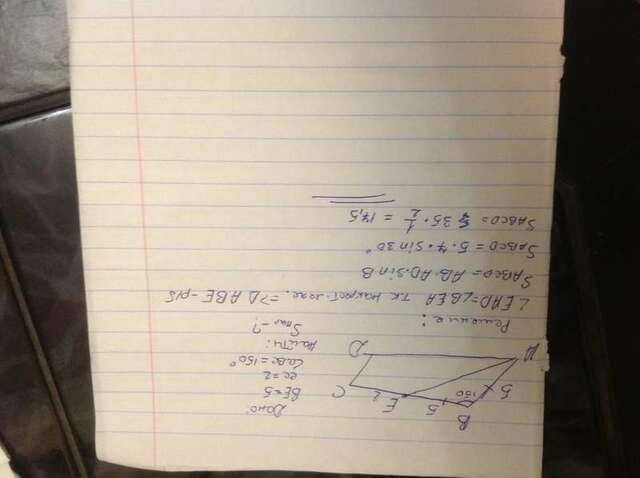 Дано:
BE=5
EC=2
∠ABC=150°
Найти:
Sпар-?
B
5
E
2
C
5
150
A
D
Решение:
∠EAD=∠BEA т.к накрест леж. => △ABE-р/б
SABCD = AB·AD·sinB
SABCD = 5·7·sin30°
SABCD = 35·1/2 = 17,5